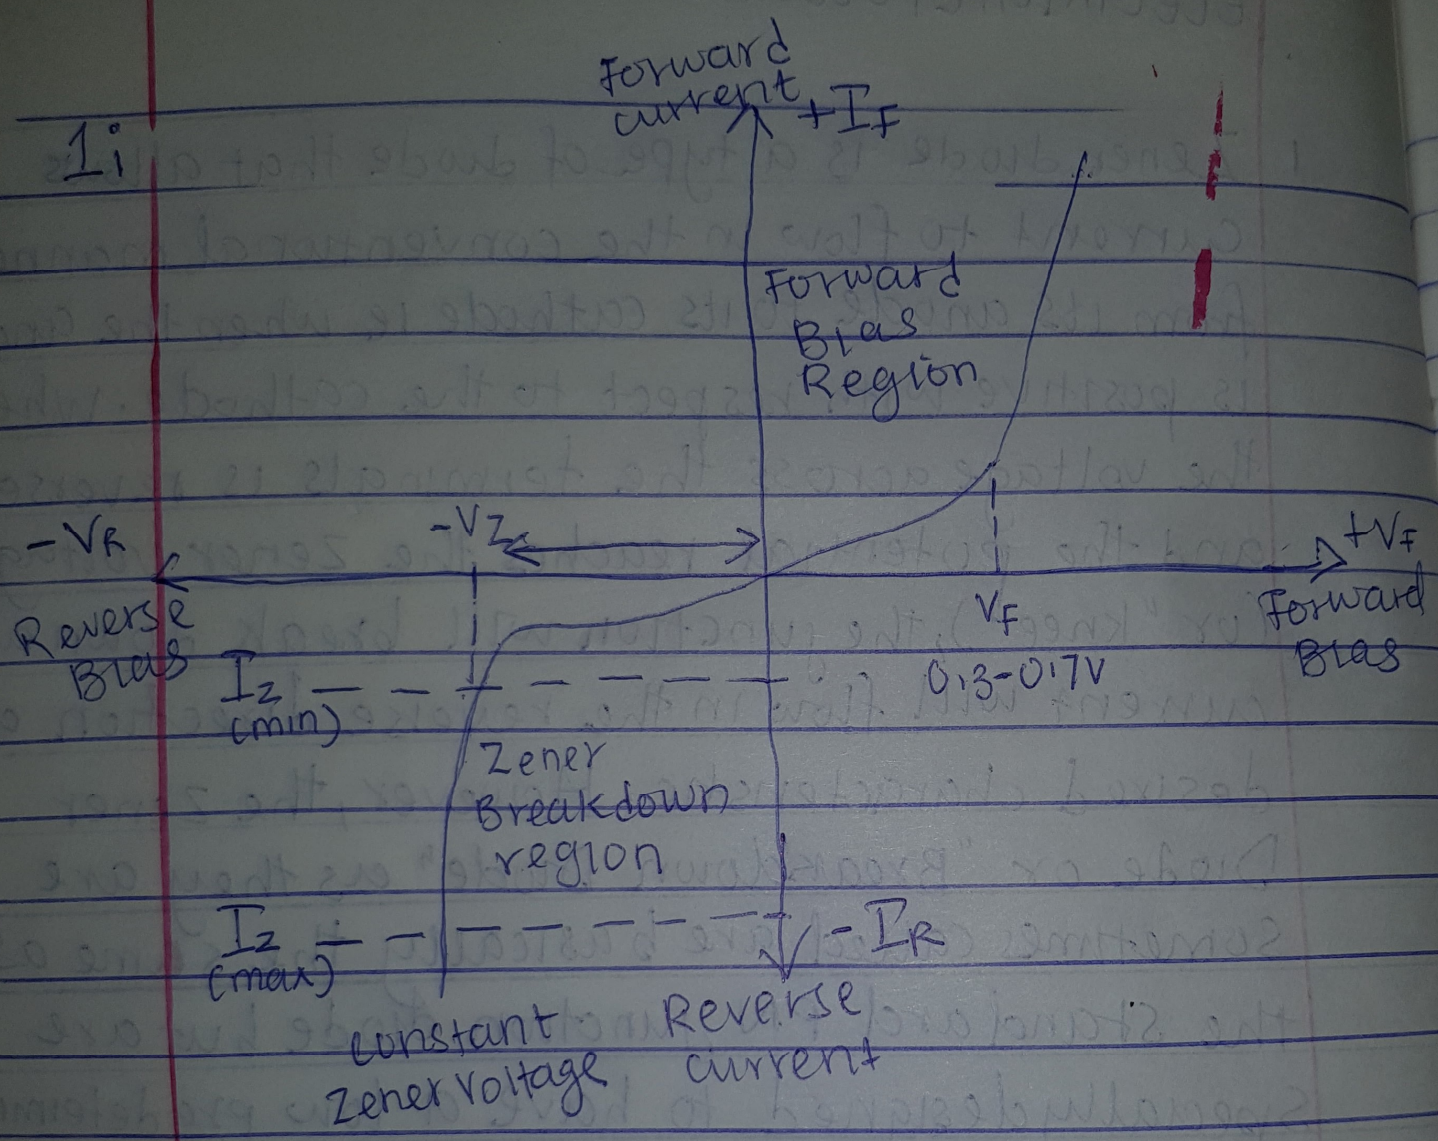 Forward
current +IF
1i
Forward
Bias
Region
-VR
-VZ
+VF
Reverse
Bias
VF
0.3-0.7V
Forward
Bias
Iz
(min)
Zener
Breakdown
region
Iz
(max)
-IR
constant
zener voltage
Reverse
current